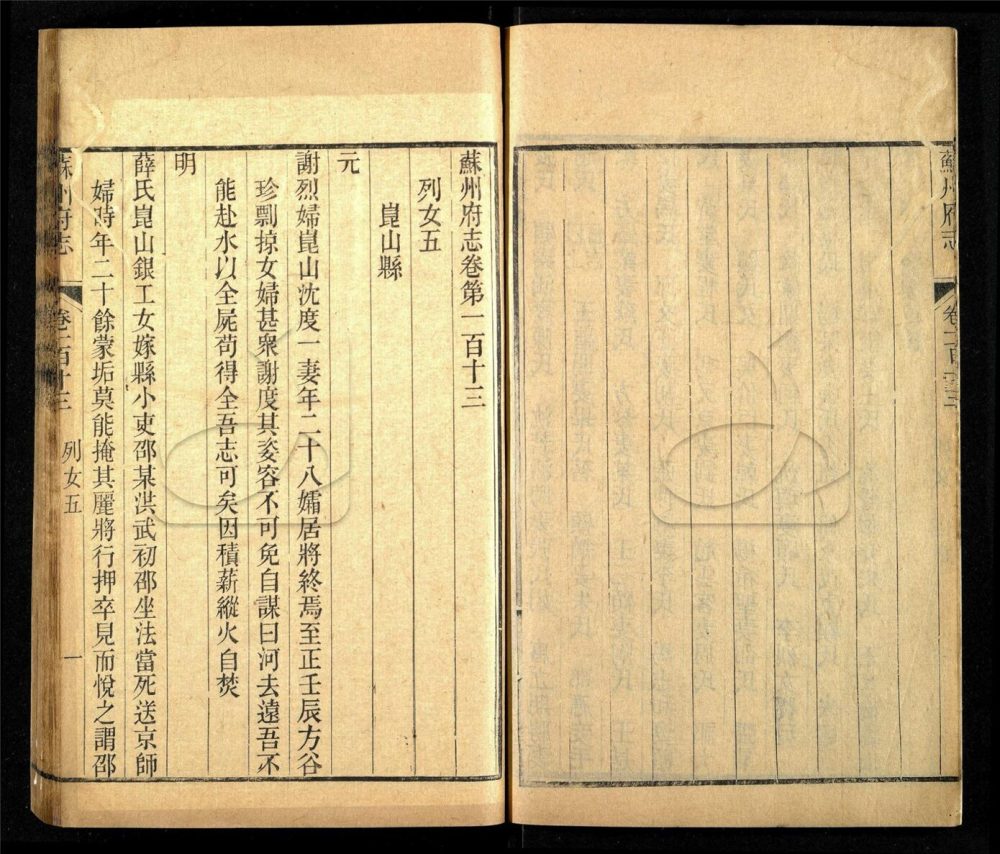 蘇州府志
蘇州府志卷第一百十三
列女五
崑山縣
元
謝烈婦崑山沈度一妻年二十八孀居將終焉至正壬辰方谷
珍剽掠女婦甚衆謝度其姿容不可免自謀曰河去遠吾不
能赴水以全屍苟得全吾志可矣因積薪縱火自焚
明
薛氏崑山銀工女嫁縣小吏邵某洪武初邵坐法當死送京師
婦時年二十餘蒙垢莫能掩其麗將行押卒見而悅之謂邵
蘇州府志 卷一百十三 列女五 一